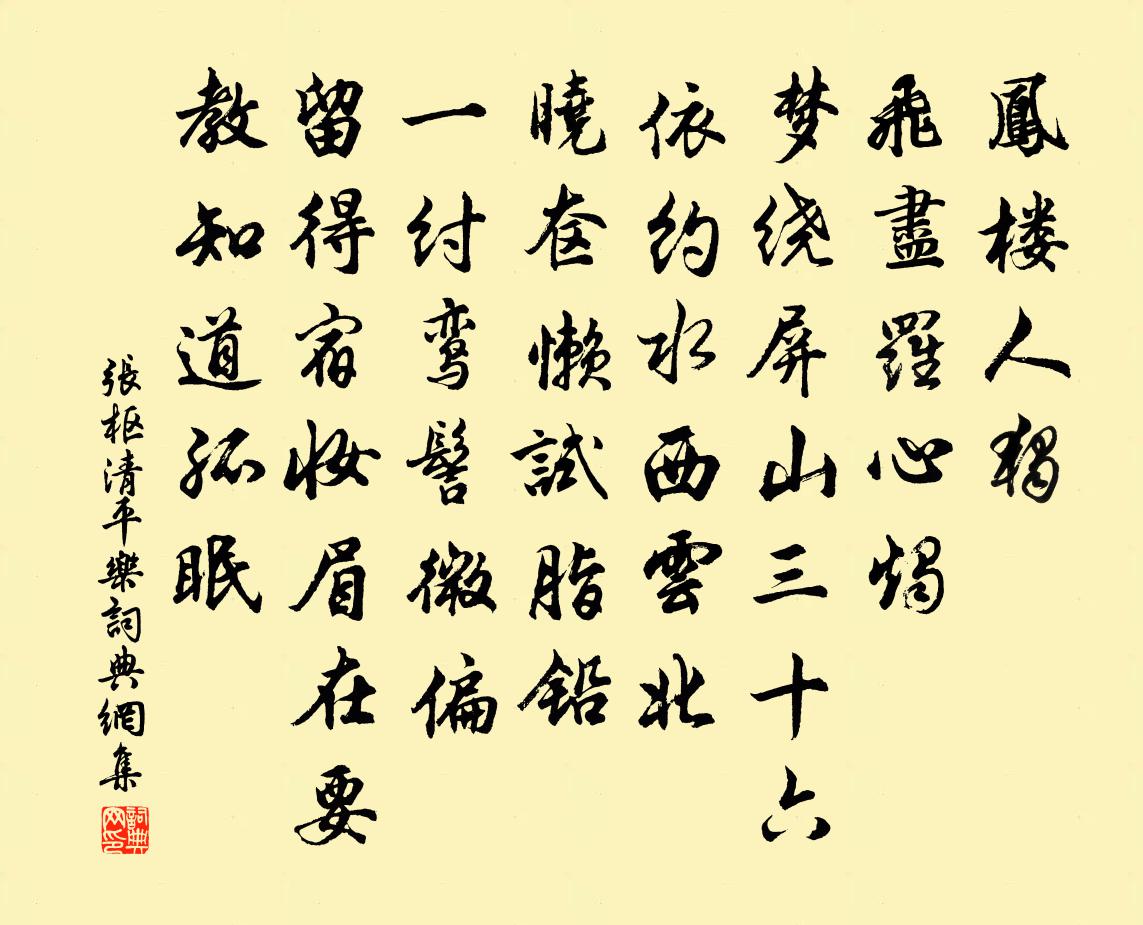 鳳楼人獨
飛盡羅心燭
梦绕屏山三十六
依约水西雲北
曉奁懒試脂铅
一付鸾髻微偏
留得宿妆眉在要
教知道孤眠
張枢清平樂詞典網集
詞典网印